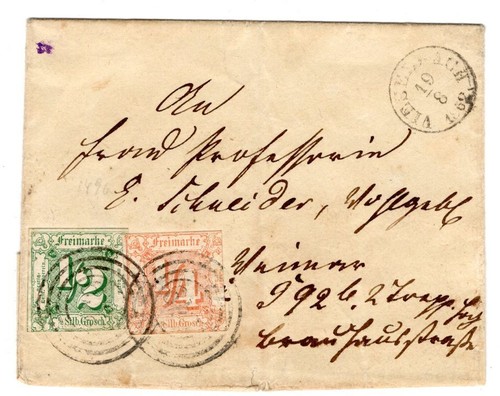 VIESELBACH
19
8
62
An
Frau Professorin
E. Schneider, Wohlgeb.
Weimar
2 Trepp. hoch
Brauhausstraße
1896
Freimarke
1/2
Silb. Grosch.
Freimarke
1/4
Silb. Grosch.